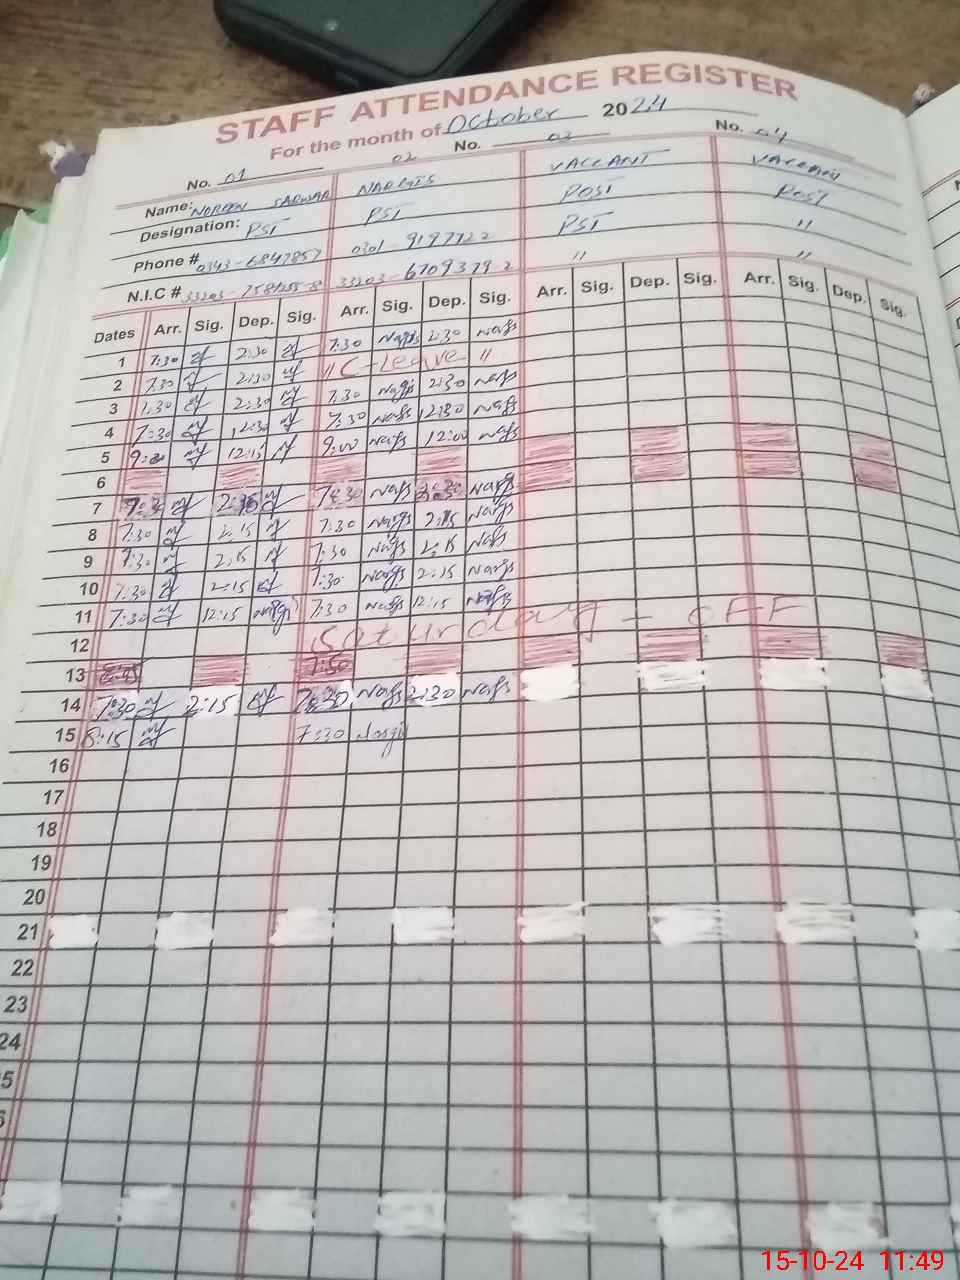 STAFF ATTENDANCE REGISTER
For the month of October 2024
No. 01 02 No. 03 No. 04
Name: NOREEN SARWAR NARGIS VACCANT VACCAN
Designation: PST PST POST POST
Phone # 0343-6847857 0301-9197722 PST "
N.I.C # 33203- 33203-6709379-2 " "
Dates Arr. Sig. Dep. Sig. Arr. Sig. Dep. Sig. Arr. Sig. Dep. Sig. Arr. Sig. Dep. Sig.
1 7:30 2:30 7:30 Nargis 2:30 Nargs
2 7:30 2:30 " C-Leave "
3 7:30 2:30 7:30 Nargs 2:30 Nargs
4 7:30 12:30 7:30 Nargs 12:30 Nargs
5 9:00 12:15 9:00 Nargs 12:00 Nargs
6
7 7:30 2:15 7:30 Nargs 2:30 Nargs
8 7:30 2:15 7:30 Nargs 2:15 Nargs
9 7:30 2:15 7:30 Nargs 2:15 Nargs
10 7:30 2:15 7:30 Nargs 2:15 Nargs
11 7:30 12:15 7:30 Nargs 12:15 Nargs
12 Saturday - OFF
13 7:30
14 7:30 2:15 7:30 Nargs 2:30 Nargs
15 8:15 7:30
16
17
18
19
20
21
22
23
24
5
6
15-10-24 11:49